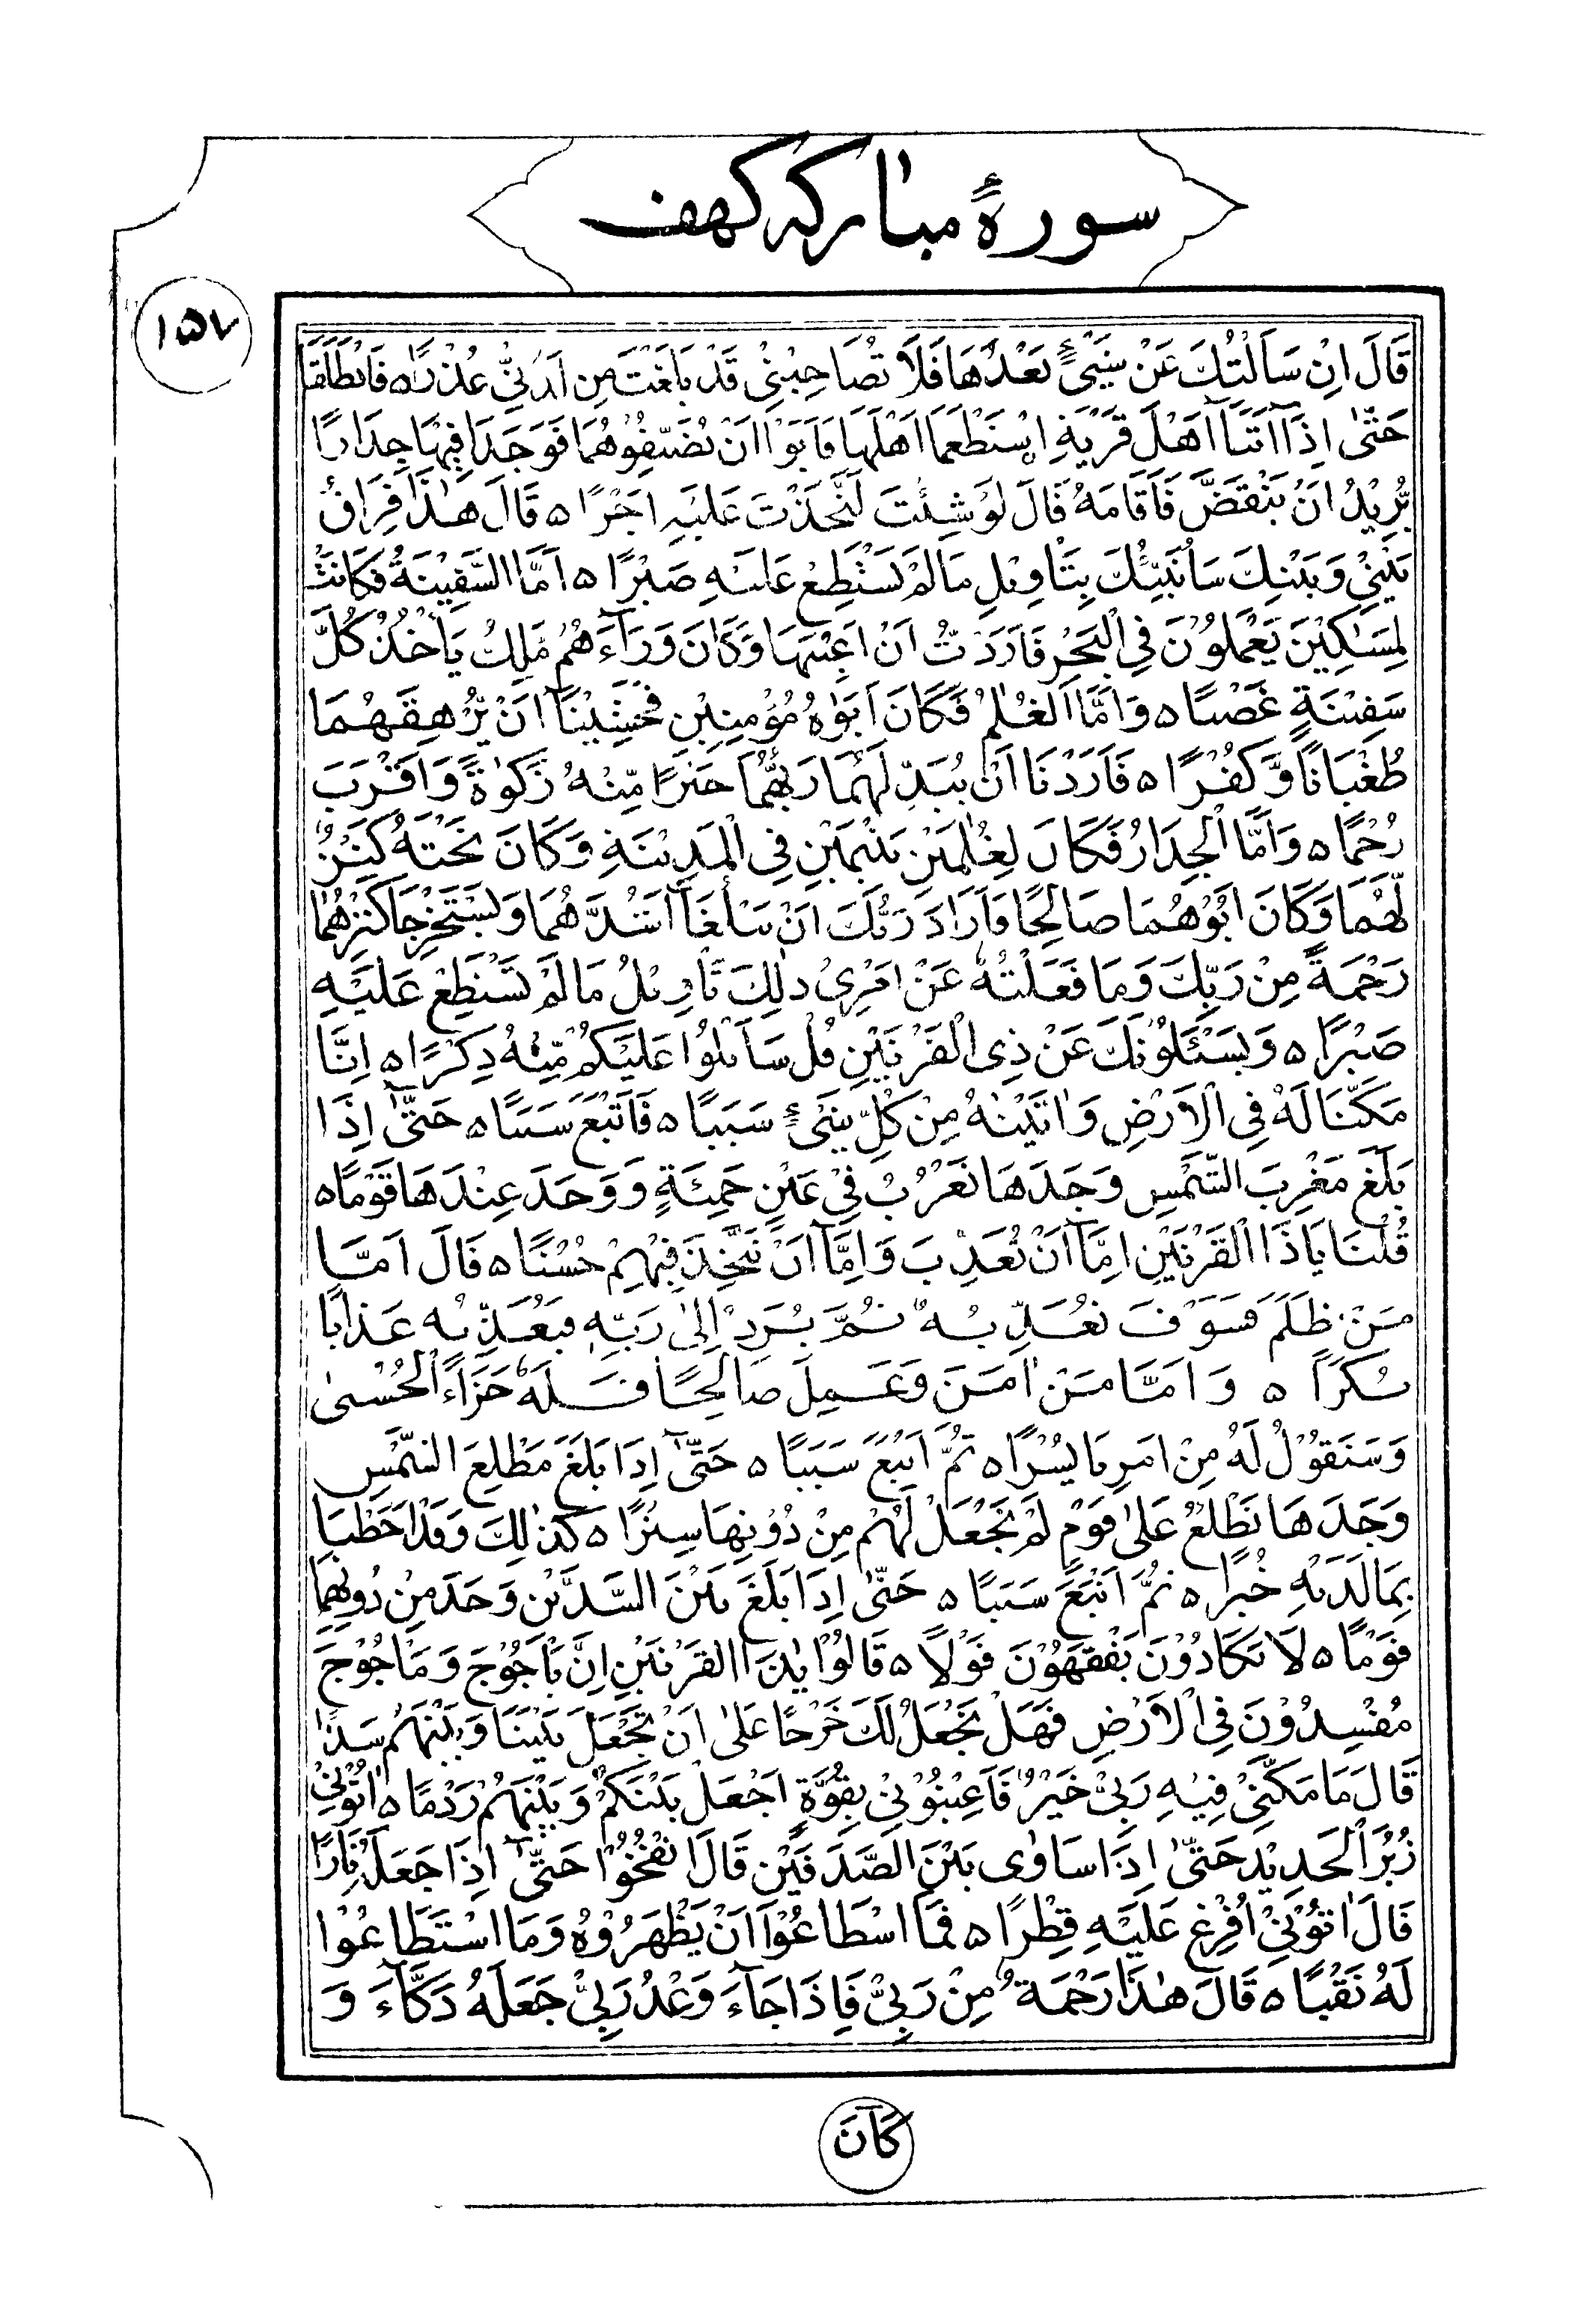 سورهٔ مبارکه کهف
۱۵۷
قَالَ اِنْ سَاَلْتُكَ عَنْ شَيْئٍ بَعْدَهَا فَلَا تُصَاحِبْنِيْ قَدْ بَلَغْتَ مِنْ لَدُنِّيْ عُذْرًا ۵ فَانْطَلَقَا
حَتّٰى اِذَا اَتَيَا اَهْلَ قَرْيَةِ اِسْتَطْعَمَا اَهْلَهَا فَاَبَوْا اَنْ يُضَيِّفُوْهُمَا فَوَجَدَا فِيْهَا جِدَارًا
يُّرِيْدُ اَنْ يَنْقَضَّ فَاَقَامَهُ قَالَ لَوْ شِئْتَ لَتَّخَذْتَ عَلَيْهِ اَجْرًا ۵ قَالَ هٰذَا فِرَاقُ
بَيْنِيْ وَبَيْنِكَ سَاُنَبِّئُكَ بِتَاْوِيْلِ مَا لَمْ تَسْتَطِعْ عَلَيْهِ صَبْرًا ۵ اَمَّا السَّفِيْنَةُ فَكَانَتْ
لِمَسٰكِيْنَ يَعْمَلُوْنَ فِي الْبَحْرِ فَاَرَدْتُ اَنْ اَعِيْبَهَا وَكَانَ وَرَآءَ هُمْ مَّلِكٌ يَاْخُذُ كُلَّ
سَفِيْنَةٍ غَصْبًا ۵ وَاَمَّا الْغُلٰمُ فَكَانَ اَبَوٰهُ مُؤْمِنِيْنِ فَخَشِيْنَآ اَنْ يُّرْهِقَهُمَا
طُغْيَانًا وَّكُفْرًا ۵ فَاَرَدْنَا اَنْ يُبَدِّلَهُمَا رَبُّهُمَا خَيْرًا مِّنْهُ زَكٰوةً وَاَقْرَبَ
رُحْمًا ۵ وَاَمَّا الْجِدَارُ فَكَانَ لِغُلٰمَيْنِ يَتِيْمَيْنِ فِي الْمَدِيْنَةِ وَكَانَ تَحْتَهُ كَنْزٌ
لَّهُمَا وَكَانَ اَبُوْهُمَا صَالِحًا فَاَرَادَ رَبُّكَ اَنْ يَبْلُغَآ اَشُدَّهُمَا وَيَسْتَخْرِجَا كَنْزَهُمَا
رَحْمَةً مِنْ رَبِّكَ وَمَا فَعَلْتُهُ عَنْ اَمْرِيْ ذٰلِكَ تَاْوِيْلُ مَا لَمْ تَسْتَطِعْ عَلَيْهِ
صَبْرًا ۵ وَيَسْئَلُوْنَكَ عَنْ ذِي الْقَرْنَيْنِ قُلْ سَاَتْلُوْا عَلَيْكُمْ مِّنْهُ ذِكْرًا ۵ اِنَّا
مَكَّنَّا لَهُ فِي الْاَرْضِ وَاٰتَيْنٰهُ مِنْ كُلِّ شَيْئٍ سَبَبًا ۵ فَاَتْبَعَ سَبَبًا ۵ حَتّٰى اِذَا
بَلَغَ مَغْرِبَ الشَّمْسِ وَجَدَهَا تَغْرُبُ فِيْ عَيْنٍ حَمِئَةٍ وَوَجَدَ عِنْدَهَا قَوْمًا ۵
قُلْنَا يَا ذَا الْقَرْنَيْنِ اِمَّآ اَنْ تُعَذِّبَ وَاِمَّآ اَنْ تَتَّخِذَ فِيْهِمْ حُسْنًا ۵ قَالَ اَمَّا
مَنْ ظَلَمَ فَسَوْفَ نُعَذِّبُهُ ثُمَّ يُرَدُّ اِلٰى رَبِّهٖ فَيُعَذِّبُهُ عَذَابًا
نُكْرًا ۵ وَاَمَّا مَنْ اٰمَنَ وَعَمِلَ صَالِحًا فَلَهُ جَزَآءَ الْحُسْنٰى
وَسَنَقُوْلُ لَهُ مِنْ اَمْرِنَا يُسْرًا ۵ ثُمَّ اَتْبَعَ سَبَبًا ۵ حَتّٰى اِذَا بَلَغَ مَطْلِعَ الشَّمْسِ
وَجَدَهَا تَطْلُعُ عَلٰى قَوْمٍ لَمْ نَجْعَلْ لَهُمْ مِنْ دُوْنِهَا سِتْرًا ۵ كَذٰلِكَ وَقَدْ اَحَطْنَا
بِمَا لَدَيْهِ خُبْرًا ۵ ثُمَّ اَتْبَعَ سَبَبًا ۵ حَتّٰى اِذَا بَلَغَ بَيْنَ السَّدَّيْنِ وَجَدَ مِنْ دُوْنِهِمَا
قَوْمًا ۵ لَا يَكَادُوْنَ يَفْقَهُوْنَ قَوْلًا ۵ قَالُوْا يٰذَا الْقَرْنَيْنِ اِنَّ يَاْجُوْجَ وَمَاْجُوْجَ
مُفْسِدُوْنَ فِي الْاَرْضِ فَهَلْ نَجْعَلُ لَكَ خَرْجًا عَلٰى اَنْ تَجْعَلَ بَيْنَنَا وَبَيْنَهُمْ سَدًّا
قَالَ مَا مَكَّنِّيْ فِيْهِ رَبِّيْ خَيْرٌ فَاَعِيْنُوْنِيْ بِقُوَّةٍ اَجْعَلْ بَيْنَكُمْ وَبَيْنَهُمْ رَدْمًا ۵ اٰتُوْنِيْ
زُبُرَ الْحَدِيْدِ حَتّٰى اِذَا سَاوٰى بَيْنَ الصَّدَفَيْنِ قَالَ انْفُخُوْا حَتّٰى اِذَا جَعَلَهُ نَارًا
قَالَ اٰتُوْنِيْ اُفْرِغْ عَلَيْهِ قِطْرًا ۵ فَمَا اسْطَاعُوْا اَنْ يَظْهَرُوْهُ وَمَا اسْتَطَاعُوْا
لَهُ نَقْبًا ۵ قَالَ هٰذَا رَحْمَةٌ مِنْ رَبِّيْ فَاِذَا جَآءَ وَعْدُ رَبِّيْ جَعَلَهُ دَكَّآءَ وَ
كَانَ